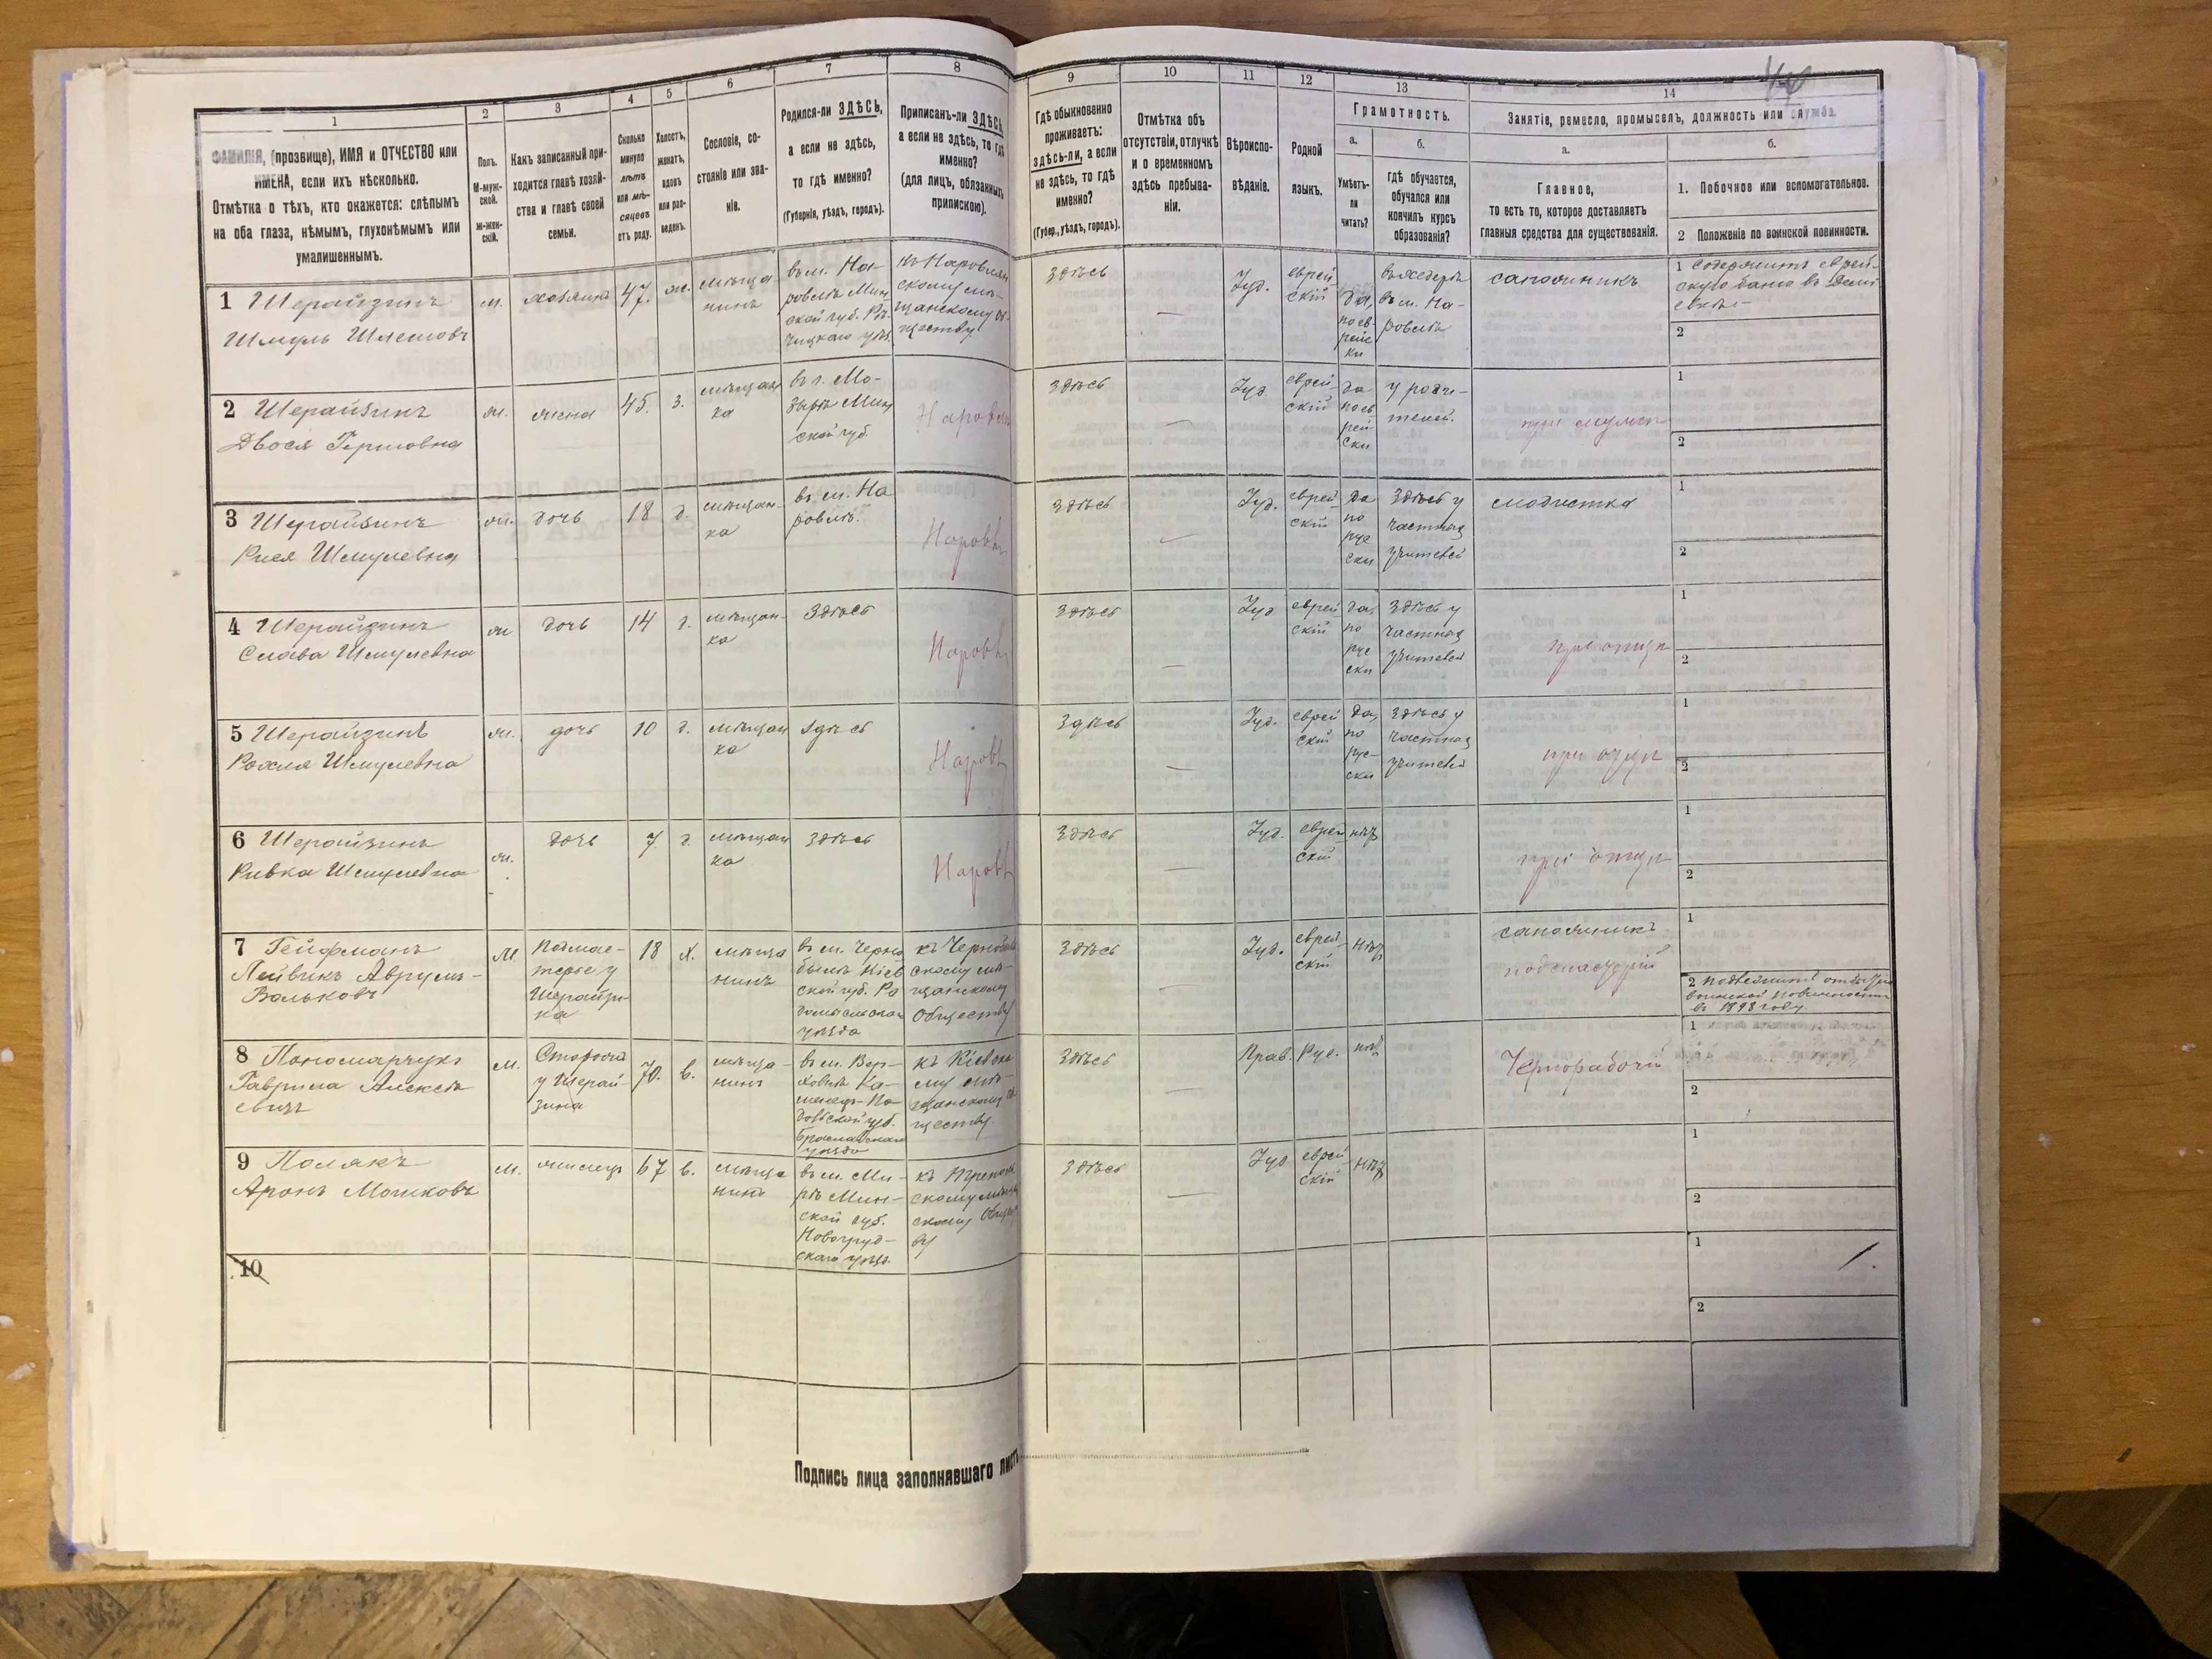 1
2
3
4
5
6
7
8
ФАМИЛІЯ, (прозвище), ИМЯ и ОТЧЕСТВО или
ИМЕНА, если ихъ нѣсколько.
Отмѣтка о тѣхъ, кто окажется: слѣпымъ
на оба глаза, нѣмымъ, глухонѣмымъ или
умалишеннымъ.
Полъ.
М-муж-
ской.
ж-жен-
скій.
Какъ записанный при-
ходится главѣ хозяй-
ства и главѣ своей
семьи.
Сколько
минуло
лѣтъ
или мѣ-
сяцевъ
отъ роду.
Холостъ,
женатъ,
вдовъ
или раз-
веденъ.
Сословіе, со-
стояніе или зва-
ніе.
Родился-ли ЗДѢСЬ,
а если не здѣсь,
то гдѣ именно?
(Губернія, уѣздъ, городъ).
Приписанъ-ли ЗДѢСЬ,
а если не здѣсь, то гдѣ
именно?
(для лицъ, обязанныхъ
припискою).
9
10
11
12
13
14
Гдѣ обыкновенно
проживаетъ:
здѣсь-ли, а если
не здѣсь, то гдѣ
именно?
(Губер., уѣздъ, городъ).
Отмѣтка объ
отсутствіи, отлучкѣ
и о временномъ
здѣсь пребыва-
ніи.
Вѣроиспо-
вѣданіе.
Родной
языкъ.
Грамотность.
а.
б.
Умѣетъ-
ли
читать?
гдѣ обучается,
обучался или
кончилъ курсъ
образованія?
Занятіе, ремесло, промыселъ, должность или служба.
а.
б.
Главное,
то есть то, которое доставляетъ
главныя средства для существованія.
1. Побочное или вспомогательное.
2 Положеніе по воинской повинности.
1 Шерайзинъ
Шмуль
м.
хозяинъ
47.
ж.
мѣща-
нинъ
въ м. На-
ровлѣ Мин
ской губ. Рѣ-
чицкаго уѣз.
къ Наровлян
скому мѣ-
щанскому об-
ществу
здѣсь
Іуд.
еврей
скій
да,
по ев-
рейс
ки
въ хедерѣ
въ м. На-
ровлѣ
сапожникъ
1 Содержитъ еврей-
скую баню въ
2
2 Шерайзинъ
Двося Гершовна
ж.
жена
45.
з.
мѣщан
ка
въ г. Мо-
зырѣ Мин
ской губ.
Наровля
здѣсь
Іуд.
еврей
скій
да
по ев
рей
ски
у роди-
телей.
при мужѣ
1
2
3 Шерайзинъ
Шмулевна
ж.
дочь
18
д.
мѣщан-
ка
въ м. На
ровлѣ.
Наровл
здѣсь
Іуд.
еврей
скій
да
по
рус
ски
здѣсь у
частныхъ
учителей
модистка
1
2
4 Шерайзинъ
Слава Шмулевна
ж
дочь
14
д.
мѣщан-
ка
здѣсь
Наровл
здѣсь
Іуд
еврей
скій
да,
по
рус
ски
здѣсь у
частных
учителей
при отцѣ
1
2
5 Шерайзинъ
Рохля Шмулевна
ж.
дочь
10
д.
мѣщан
ка
здѣсь
Наровл
здѣсь
Іуд.
еврей
скій
да,
по
рус-
ски
здѣсь у
частных
учителей
при отцѣ
1
2
6 Шерайзинъ
Ривка Шмулевна
ж.
дочь
7
д.
мѣщан
ка
здѣсь
Наровл
здѣсь
Іуд.
еврей
скій
нѣт
при отцѣ
1
2
7 Гейфманъ
Лейвикъ Аврумъ-
Вольковъ
м
18
х.
мѣща
нинъ
въ м. Черно
былѣ Кіев
ской губ. Ра
домысльскаго
уѣзда
къ Чернобыль
скому мѣ-
щанскому
обществу
здѣсь
Іуд.
еврей
скій
нѣт
сапожникъ
1
2 подлежитъ
воинской повинности
въ 1898 году.
8 Пономарчукъ
Гаврила Алексѣ
евичъ
м.
Сторожъ
у Шерай-
зина
70.
в.
мѣща-
нинъ
къ Кіевска
му мѣ-
щанскому об
ществу.
здѣсь
Прав.
Рус.
нѣт
Чернорабочій
1
2
9 Полякъ
Аронъ Мошковъ
м.
жилецъ
67
в.
мѣща
нинъ
въ м. Ми-
рѣ Мин-
ской губ.
Новогруд-
скаго уѣзд.
здѣсь
Іуд
еврей
скій
нѣт
1
2
10
1
2
Подпись лица заполнявшаго листъ